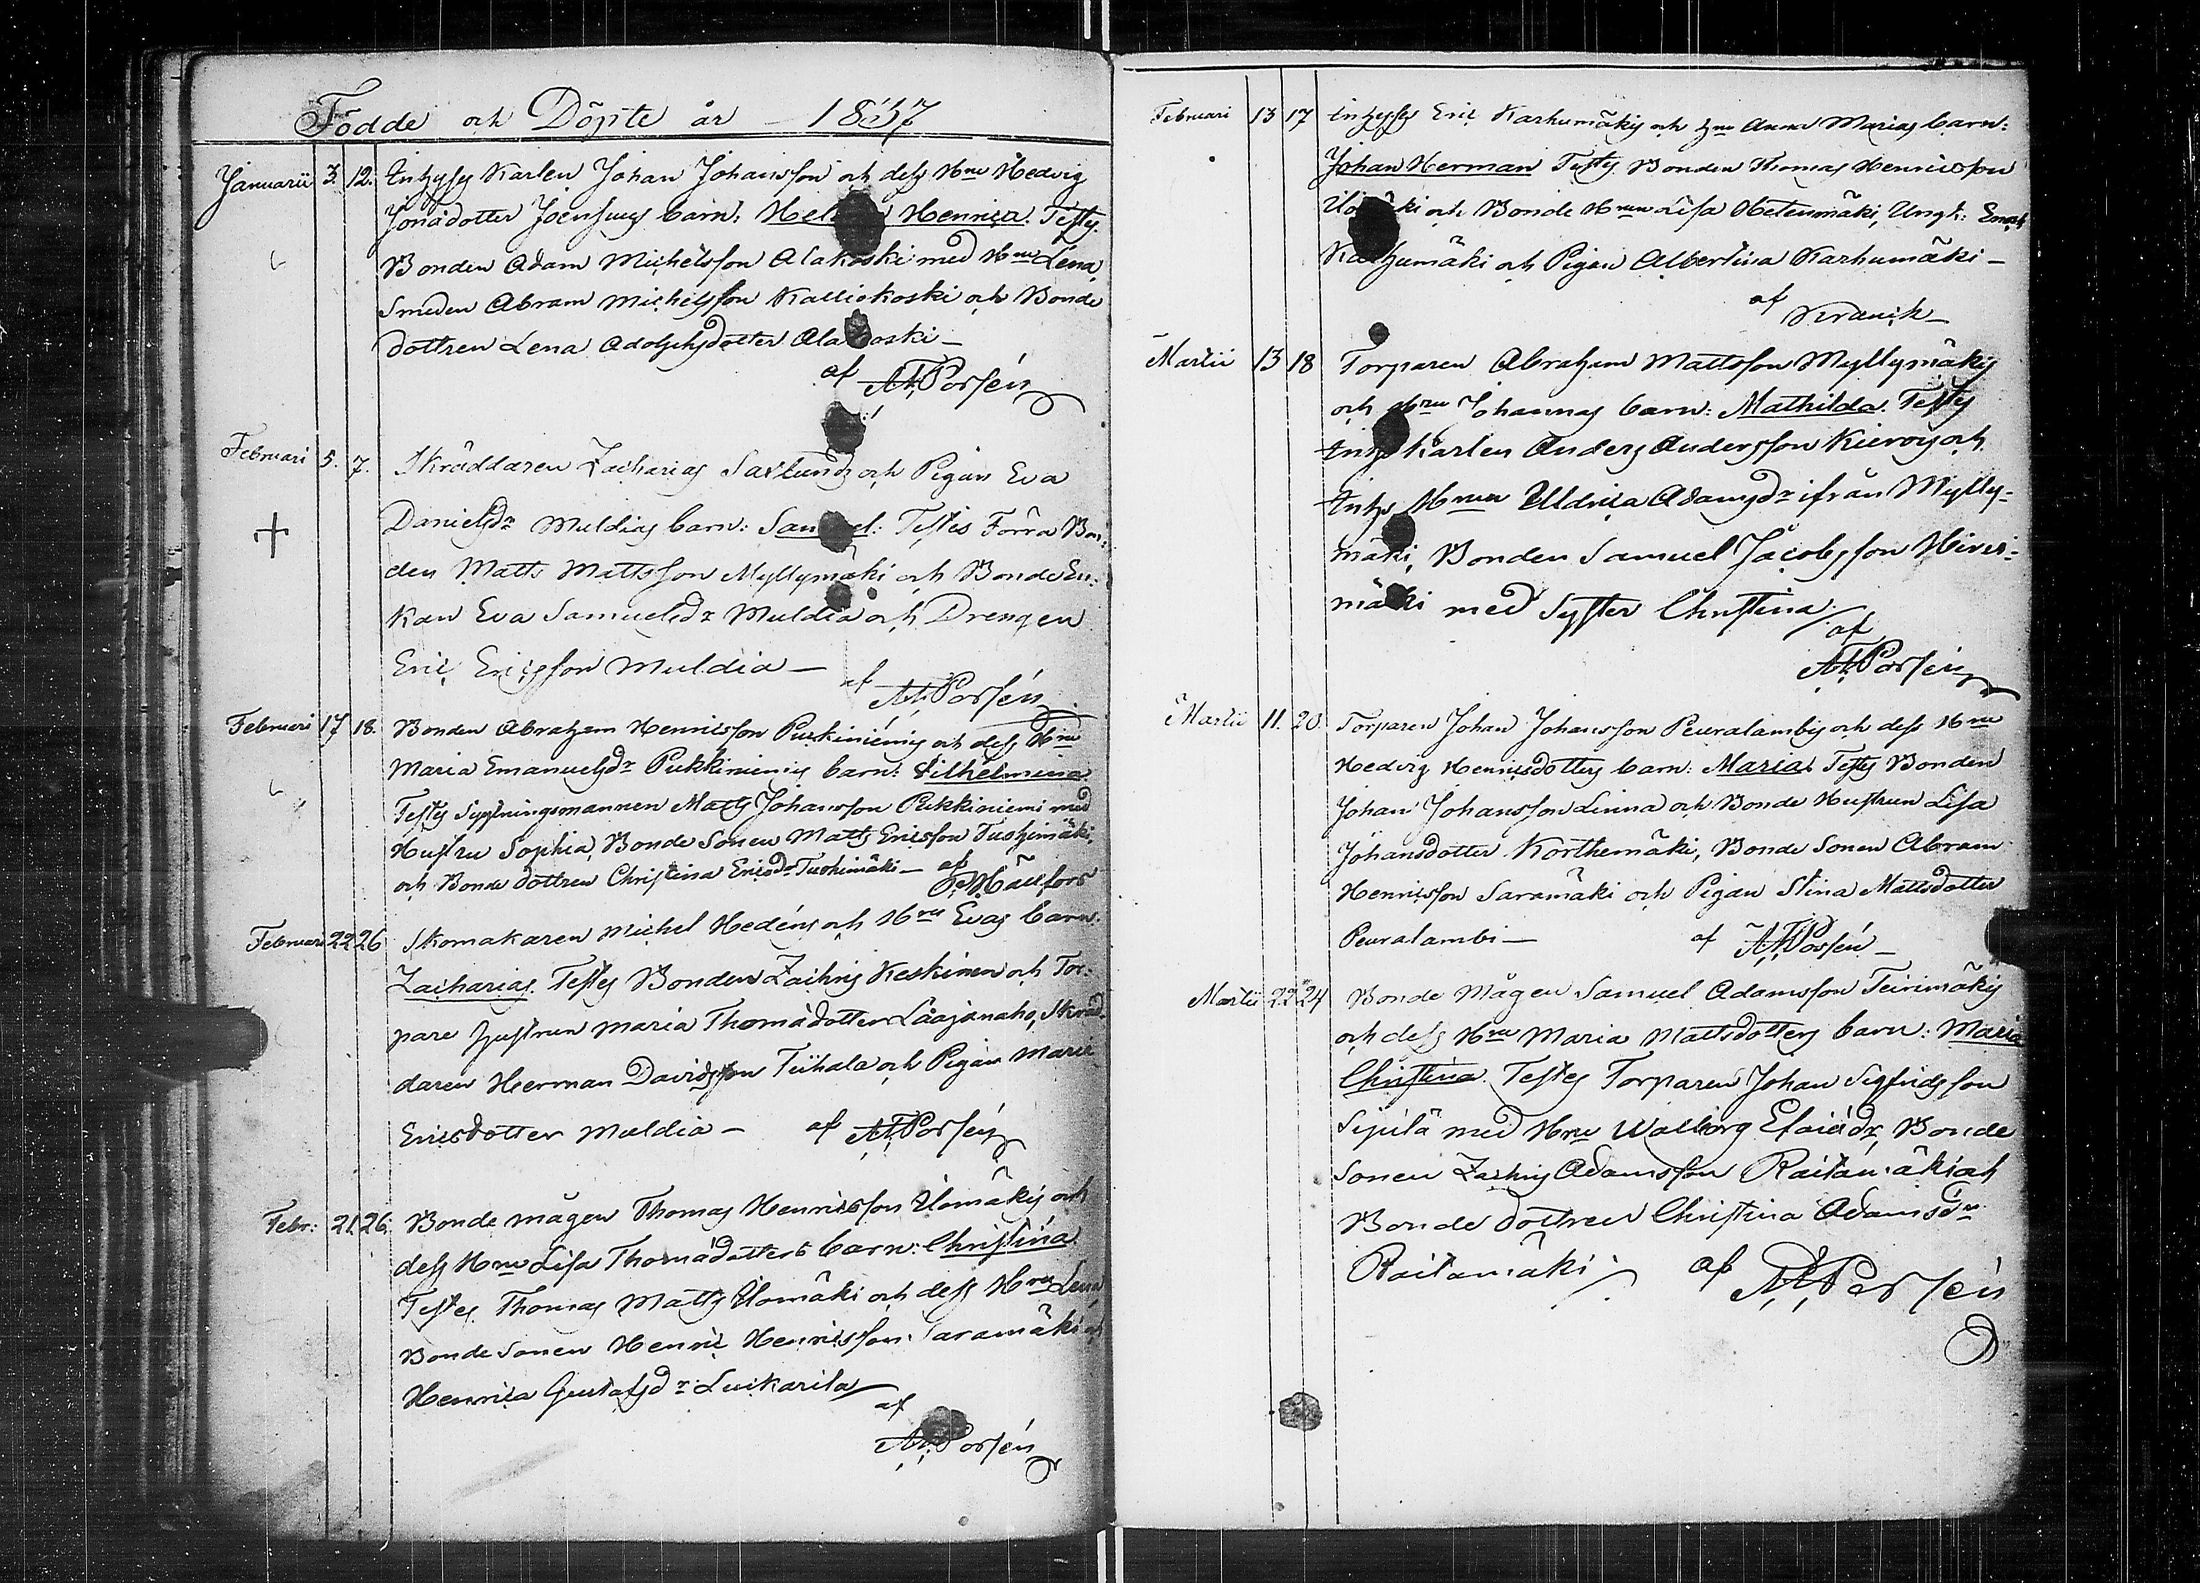 Födde och Döpte år 1837
Januarii 3. 12. Inhyses Karlen Johan Johansson och dess Hru Hedvig
Jonædotter Joensuus barn: Henrica. Testes
Bonden Adam Michelsson Alakoski med Hru Lena
Smeden Abram Michelsson Kalliokoski och Bonde
dottren Lena Adolphsdotter
af Porsén
Februari 5. 7. Skräddaren Zacharias och Pigan Eva
Danielsdr Muldias barn: Testes Förra Bon:
den Matts Mattsson Myllymäki och Bonde En:
kan Eva Samuelsdr Muldia och Drengen
Eric Ericsson Muldia —
af Porsén
Februari 17 18. Bonden Abraham Henricsson och dess Hru
Maria Emanuelsdr Pukkiniemis barn: Vilhelmina
Testes Sytningsmannen Matts Johansson Pukkiniemi med
Hustru Sophia, Bonde Sonen Matts Ericsson Tuohimäki,
och Bonde dottren Christina Ericsdr Tuohimäki — af
Februari 22 26 Skomakaren Michel Hedéns och Hrus Evas barn:
Zacharias. Testes Bonden Zachris Keskinen och Tor:
pare hustrun Maria Thomædotter Laajanaho, Skräd-
daren Herman Davidsson Tiihala och Pigan Maria
Ericsdotter Muldia — af Porsén
Febr: 21. 26. Bonde mågen Thomas Henricsson Ilomäkis och
dess Hru Lisa Thomædotters barn: Christina.
Testes Thomas Matts Ilomäki och dess Hru Lena
Bonde Sonen Henric Henricsson Saramäki och
Henrica Gustafsdr
af
Porsén
Februari 13 17 Inhyses Eric Karhumäkis och hru Anna Marias barn:
Johan Herman Testes Bonden Thomas Henricsson
och Bonde Hrun Lisa Hetemäki, Ungk:
Karhumäki och Pigan Albertina Karhumäki —
af
Martii 13 18 Torparen Abraham Mattsson Myllymäkis
och Hru Johannas barn: Mathilda. Testes
Karlen Anders Andersson och
Inhys Hrun Uldrica Adamsdr ifrån Mylly-
mäki, Bonden Samuel Jacobsson Hirvi-
mäki med Syster Christina.
af
Porsén
Martii 11. 20. Torparen Johan Johansson Peuralambis och dess Hru
Hedvig Henricsdotters barn: Maria. Testes Bonden
Johan Johansson Linna och Bonde Hustrun Lisa
Johansdotter Korthemäki, Bonde Sonen Abram
Henricsson Saramäki och Pigan Stina Mattsdotter
Peuralambi — af Porsén —
Martii 22 24 Bonde Mågen Samuel Adamsson Teirimäkis
och dess Hru Maria Mattsdotters barn: Maria
Christina. Testes Torparen Johan Sigfridsson
Sipilä med Hru Walborg Esaiædr, Bonde
Sonen Zachris Adamsson Raitamäki och
Bonde dottren Christina Adamsdr
Raitamäki. af Porsén